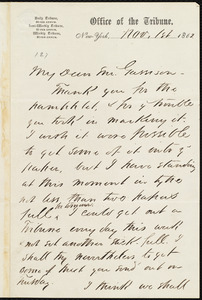 Daily Tribune,
Semi-Weekly Tribune,
Weekly Tribune,
Office of the Tribune.
New-York, Nov. 1st 186
My Dear Mr. Garrison—
Thank you for the
pamphlet, & for the trouble
you took in marking it.
I wish it were possible
to get some of it into the
paper, but I have standing
at this moment in type
not less than two papers
full. I could get out a
Tribune every day this week
& not set another stick full. I
shall try nevertheless to get
some of what you send out on
Tuesday.
I think we shall